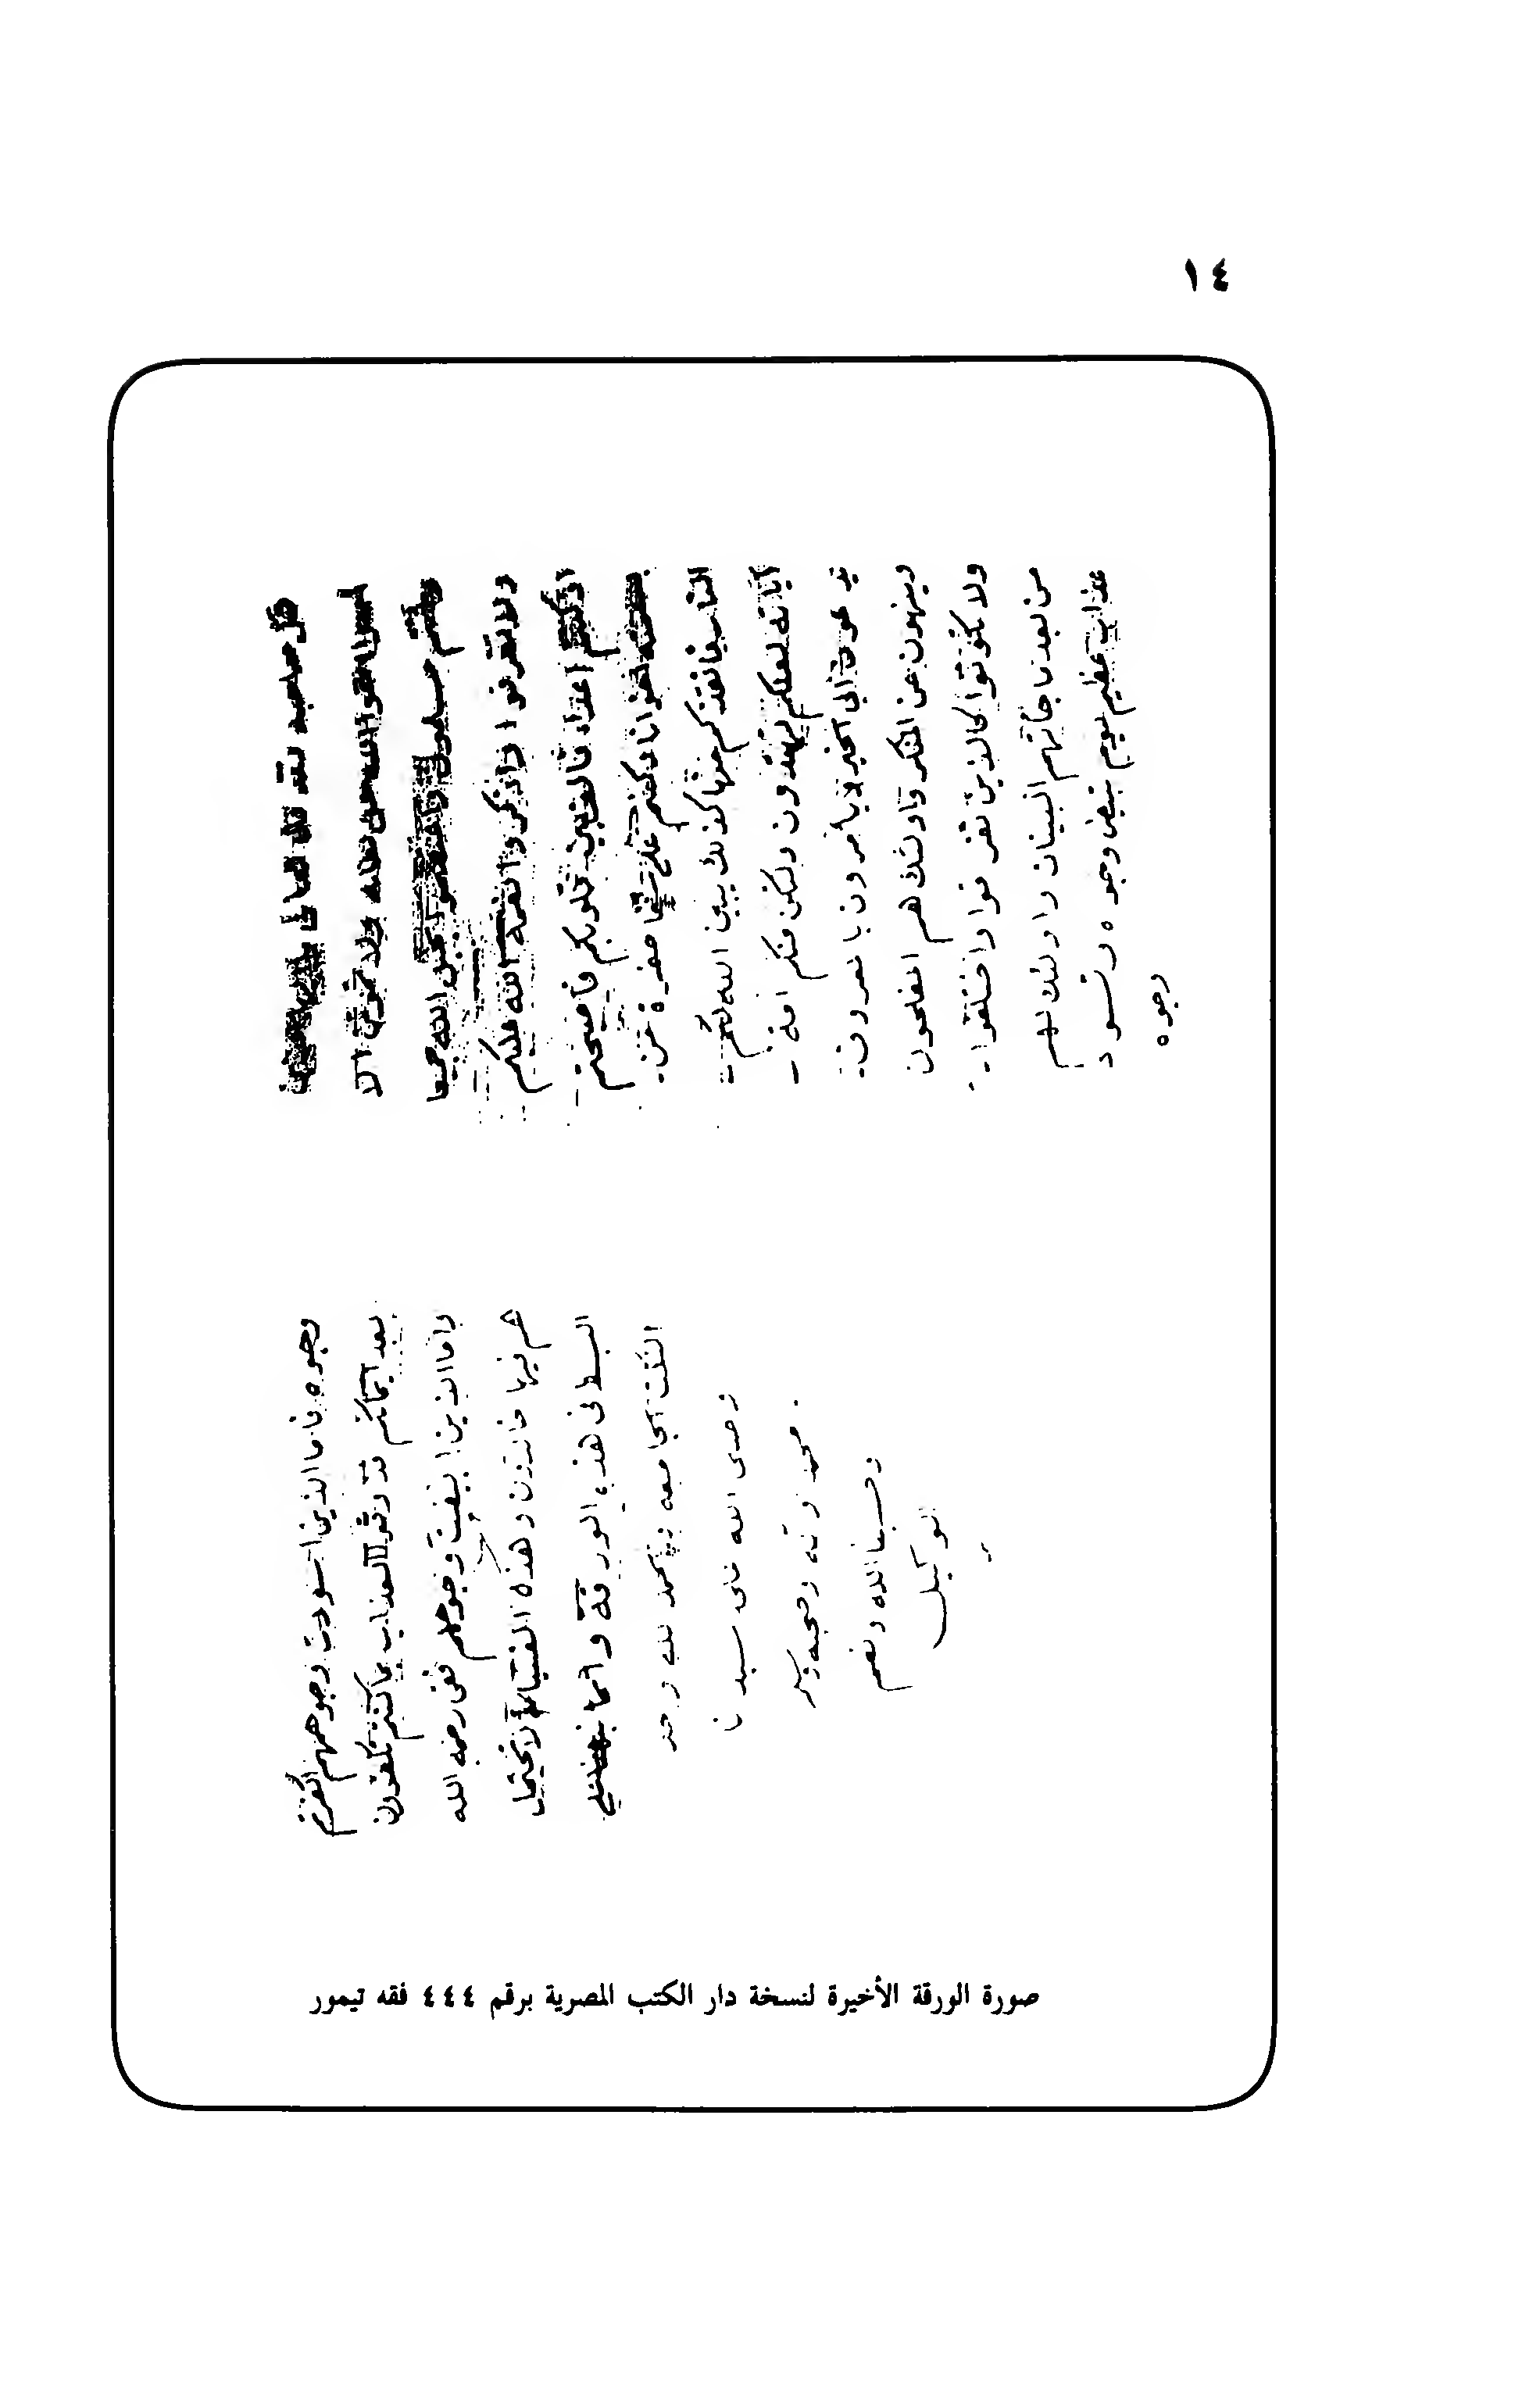 ١٤
كل صاحبه لقد قال تعالى يا أيها الذين
آمنوا اتقوا الله حق تقاته ولا تموتن الا
وانتم مسلمون واعتصموا بحبل الله جميعا
ولا تفرقوا واذكروا نعمة الله عليكم
اذ كنتم اعداء فالف بين قلوبكم فاصبحتم
بنعمته اخوانا وكنتم على شفا حفرة من
النار فانقذكم منها كذلك يبين الله لكم
آياته لعلكم تهتدون ولتكن منكم امة
يدعون الى الخير ويأمرون بالمعروف
وينهون عن المنكر واولئك هم المفلحون
ولا تكونوا كالذين تفرقوا واختلفوا
من بعد ما جائهم البينات واولئك لهم
عذاب عظيم يوم تبيض وجوه وتسود
وجوه
وجوه فاما الذين اسودت وجوههم اكفرتم
بعد ايمانكم فذوقوا العذاب بما كنتم تكفرون
واما الذين ابيضت وجوههم ففى رحمة الله
هم فيها خالدون وهذه الفتيا لا تحتمل
البسط فى هذه الورقة وانما
النكت الجامعة والحمد لله وحده
وصلى الله على سيدنا
محمد وآله وصحبه وسلم
وحسبنا الله ونعم
الوكيل
صورة الورقة الأخيرة لنسخة دار الكتب المصرية برقم ٤٤٤ فقه تيمور